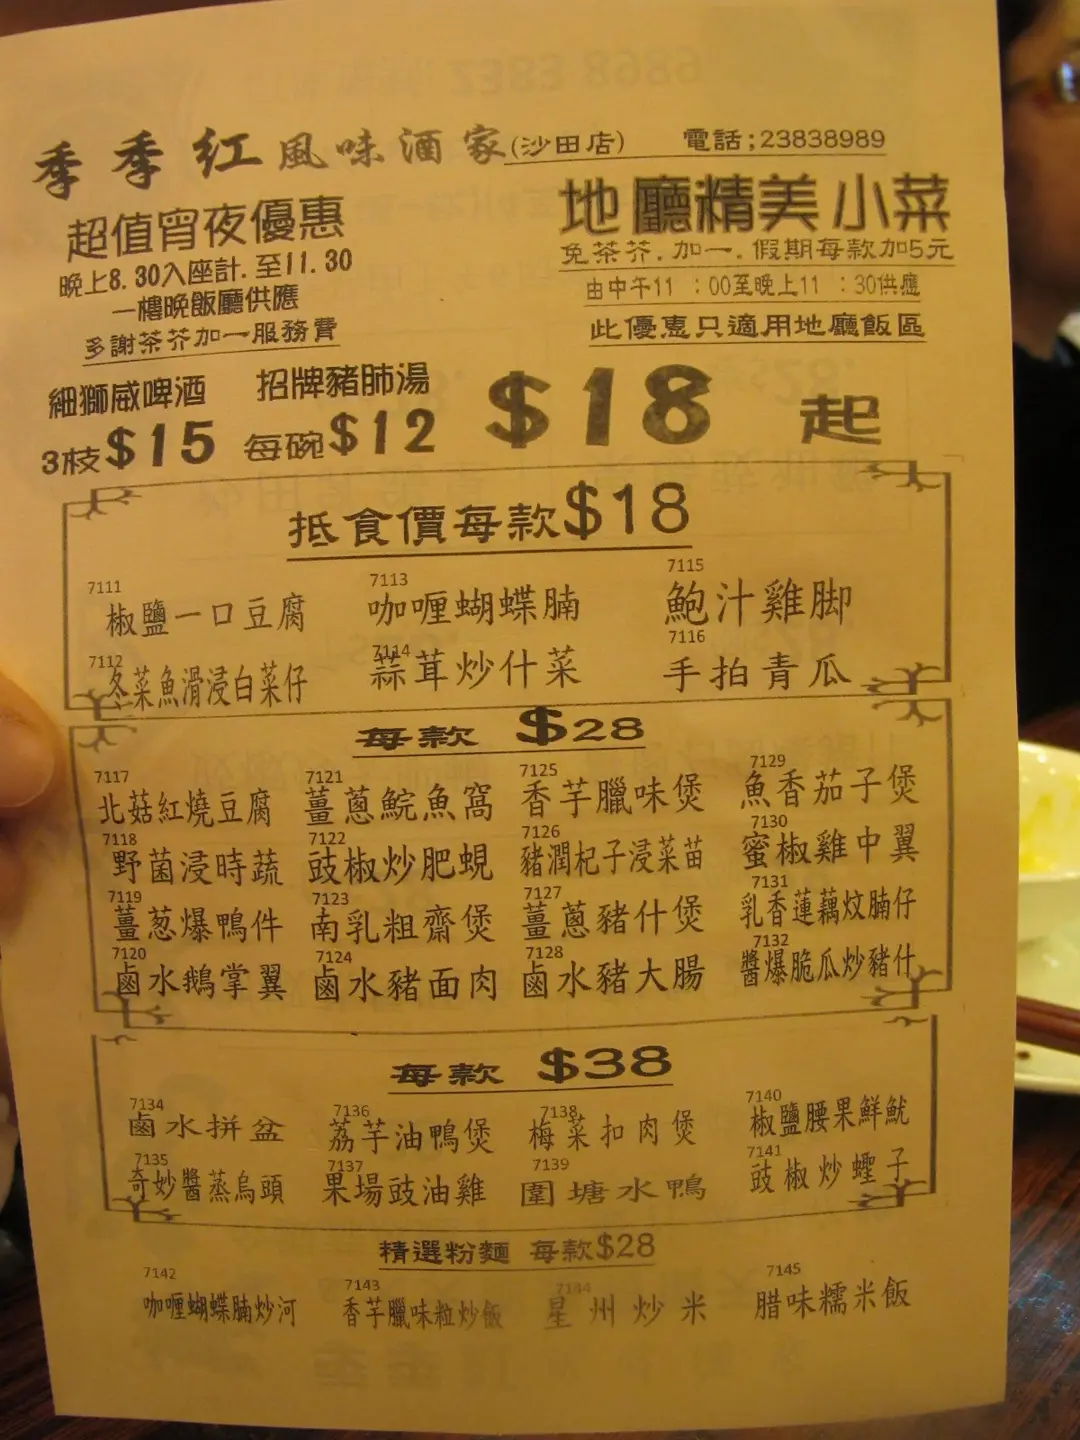 季季红風味酒家(沙田店) 電話;23838989
超值宵夜優惠
晚上8.30入座計.至11.30
一樓晚飯廳供應
多謝茶芥加一服務費
地廳精美小菜
免茶芥.加一.假期每款加5元
由中午11 :00至晚上11 :30供應
此優惠只適用地廳飯區
細獅威啤酒 招牌豬肺湯
3枝$15 每碗$12 $18 起
抵食價每款$18
7111 7113 7115
椒鹽一口豆腐 咖喱蝴蝶腩 鮑汁雞脚
7112 7114 7116
冬菜魚滑浸白菜仔 蒜茸炒什菜 手拍青瓜
每款 $28
7117 7121 7125 7129
北菇紅燒豆腐 薑蔥鯇魚窩 香芋臘味煲 魚香茄子煲
7118 7122 7126 7130
野菌浸時蔬 豉椒炒肥蜆 豬潤杞子浸菜苗 蜜椒雞中翼
7119 7123 7127 7131
薑葱爆鴨件 南乳粗齋煲 薑蔥豬什煲 乳香蓮藕炆腩仔
7120 7124 7128 7132
鹵水鵝掌翼 鹵水豬面肉 鹵水豬大腸 醬爆脆瓜炒豬什
每款 $38
7134 7136 7138 7140
鹵水拼盆 荔芋油鴨煲 梅菜扣肉煲 椒鹽腰果鮮魷
7135 7137 7139 7141
奇妙醬蒸烏頭 果場豉油雞 圍塘水鴨 豉椒炒蟶子
精選粉麵 每款$28
7142 7143 7144 7145
咖喱蝴蝶腩炒河 香芋臘味粒炒飯 星州炒米 腊味糯米飯